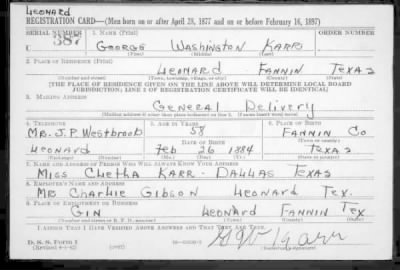 Leonard
REGISTRATION CARD—(Men born on or after April 28, 1877 and on or before February 16, 1897)
SERIAL NUMBER 1. NAME (Print) ORDER NUMBER
387 George Washington Karr
(First) (Middle) (Last)
2. PLACE OF RESIDENCE (Print)
Leonard Fannin Texas
(Number and street) (Town, township, village, or city) (County) (State)
[THE PLACE OF RESIDENCE GIVEN ON THE LINE ABOVE WILL DETERMINE LOCAL BOARD
JURISDICTION; LINE 2 OF REGISTRATION CERTIFICATE WILL BE IDENTICAL]
3. MAILING ADDRESS
General Delivery
[Mailing address if other than place indicated on line 2. If same insert word same]
4. TELEPHONE 5. AGE IN YEARS 6. PLACE OF BIRTH
Mr. J.P. Westbrook 58 Fannin Co
DATE OF BIRTH (Town or county)
Leonard Feb 26 1884 Texas
(Exchange) (Number) (Mo.) (Day) (Yr.) (State or country)
7. NAME AND ADDRESS OF PERSON WHO WILL ALWAYS KNOW YOUR ADDRESS
Miss Chetha Karr - Dallas Texas
8. EMPLOYER'S NAME AND ADDRESS
Mr Charlie Gibson Leonard Tex.
9. PLACE OF EMPLOYMENT OR BUSINESS
Gin Leonard Fannin Tex
(Number and street or R. F. D. number) (Town) (County) (State)
I AFFIRM THAT I HAVE VERIFIED ABOVE ANSWERS AND THAT THEY ARE TRUE.
D. S. S. Form 1 G W Karr
(Revised 4-1-42) (over) (Registrant's signature)